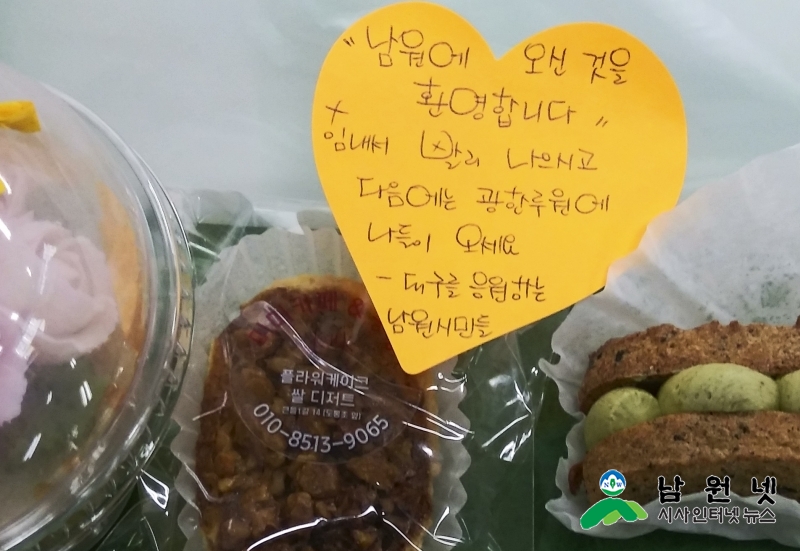 "남원에 오신 것을
환영합니다"
힘내서 빨리 나으시고
다음에는 광한루원에
나들이 오세요
- 대구를 응원하는
남원시민들
플라워케이크
쌀 디저트
010-8513-9065
남원넷
시사인터넷뉴스